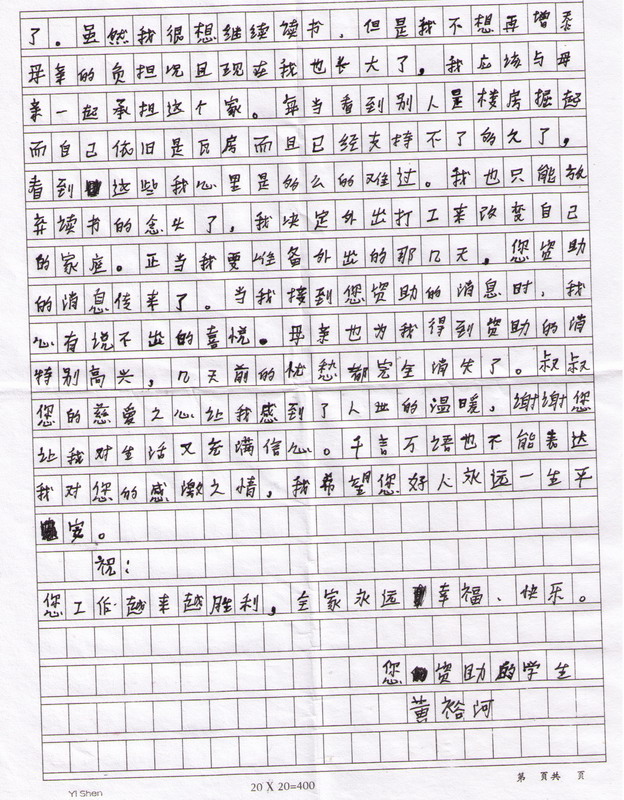 了。虽然我很想继续读书，但是我不想再增添
母亲的负担况且现在我也长大了，我应该与母
亲一起承担这个家。每当看到别人是楼房掘起
而自己依旧是瓦房而且已经支持不了的久了，
看到这些我心里是的么的难过。我也只能放
弃读书的念头了，我决定外出打工来改变自己
的家庭。正当我要准备外出的那几天，您资助
的消息传来了。当我接到您资助的消息时，我
心有说不出的喜悦。母亲也为我得到资助的消
特别高兴，几天前的忧愁都完全消失了。叔叔
您的慈爱之心让我感到了人世的温暖，谢谢您
让我对生活又充满信心。千言万语也不能表达
我对您的感激之情，我希望您好人永远一生平
安。
祝：
您工作越来越胜利，全家永远幸福、快乐。
您资助的学生
黄裕河
第 页共 页
20 X 20=400
Yi Shen